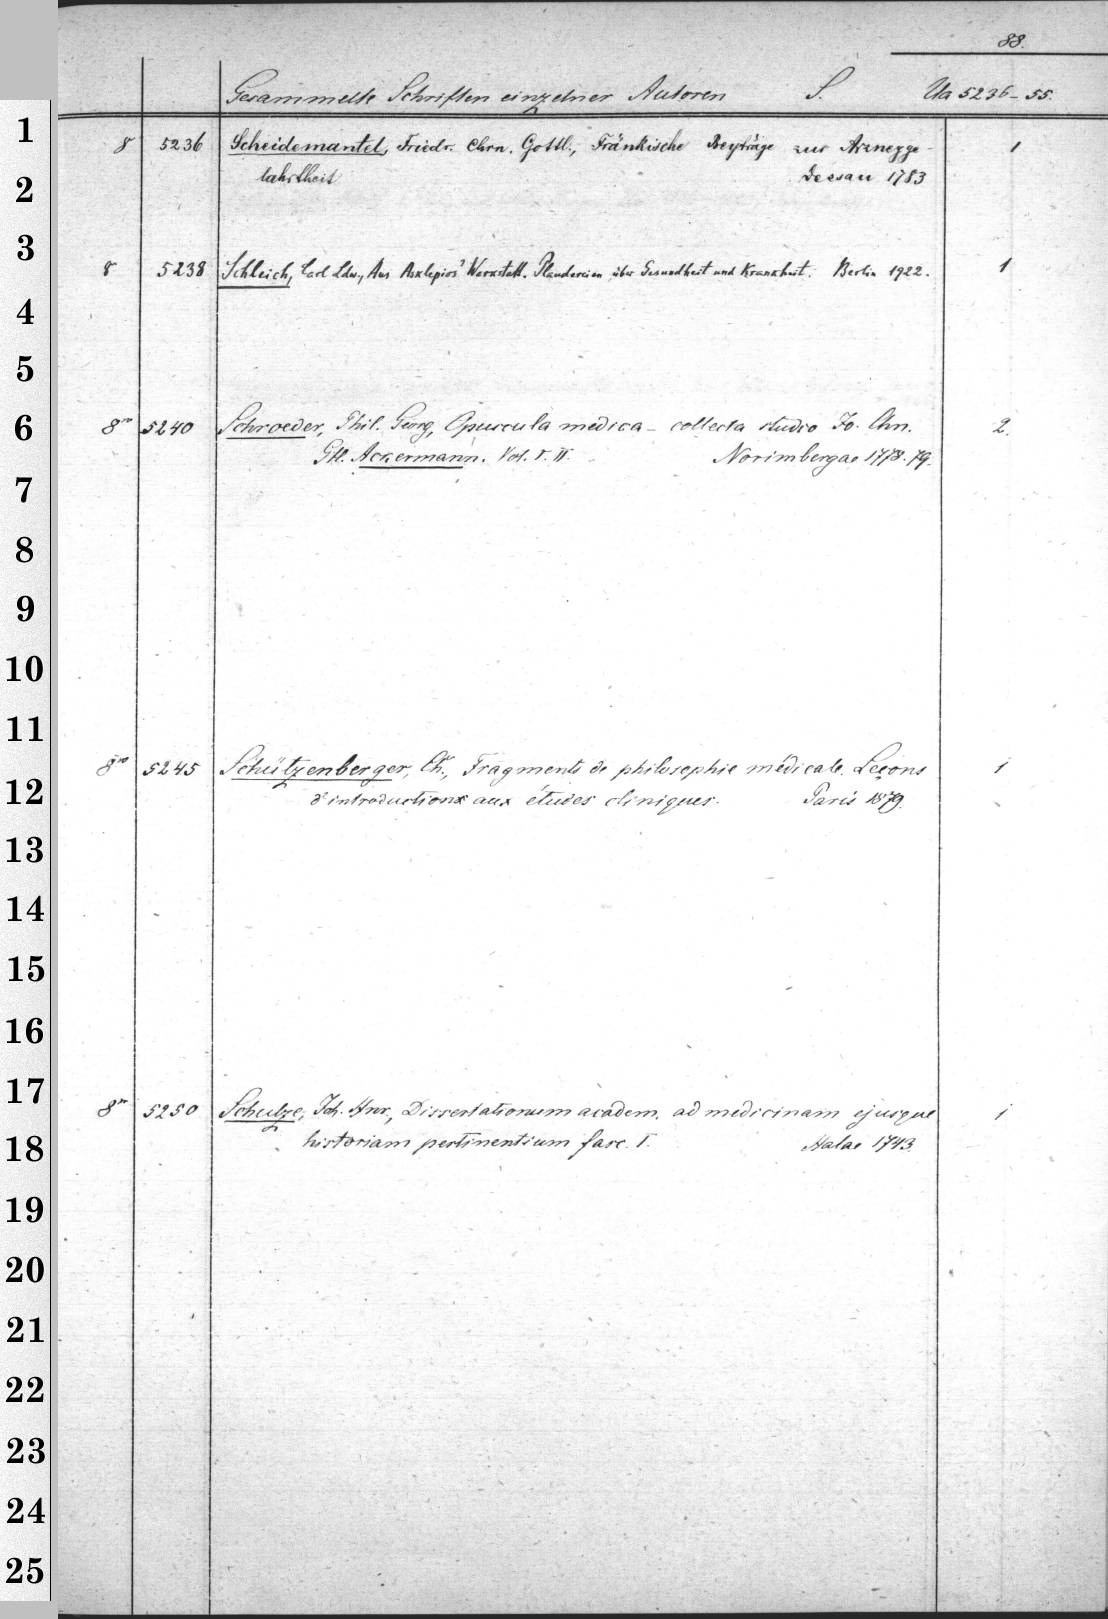 88.
Gesammelte Schriften einzelner Autoren S. Ua 5236-55.
1
8 5236 Scheidemantel, Friedr. Chrn. Gottl., Fränkische Beyträge zur Arzneyge- 1
2
lahrtheit Dessau 1783
3
8 5238 Schleich, Carl Ldw., Aus Asklepios' Werkstatt. Plaudereien über Gesundheit und Krankheit. Berlin 1922. 1
4
5
6
8vo 5240 Schroeder, Phil. Georg, Opuscula medica - collecta studio Jo. Chn. 2.
Gtl. Ackermann. Vol. I. II. Norimbergae 1778.79.
7
8
9
10
11
8vo 5245 Schützenberger, Ch., Fragments de philosophie médicale. Leçons 1
12
d'introductions aux études cliniques. Paris 1879.
13
14
15
16
17
8vo 5250 Schulze, Joh. Hnr., Dissertationum academ. ad medicinam ejusque 1
18
historiam pertinentium fasc. I. Halae 1743.
19
20
21
22
23
24
25